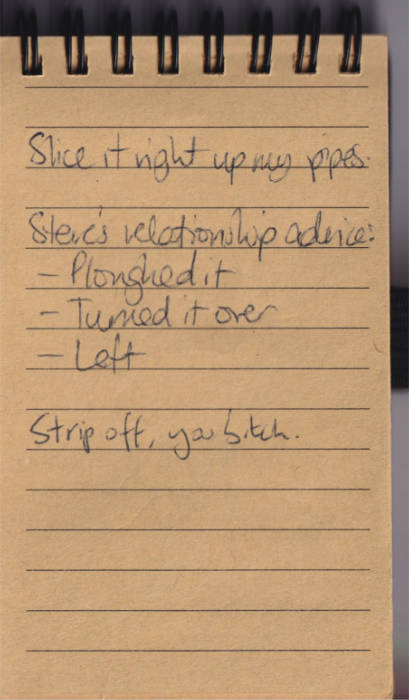 Slice it right up my pipes.
Steve's relationship advice:
- Ploughed it
- Turned it over
- Left
Strip off, you bitch.